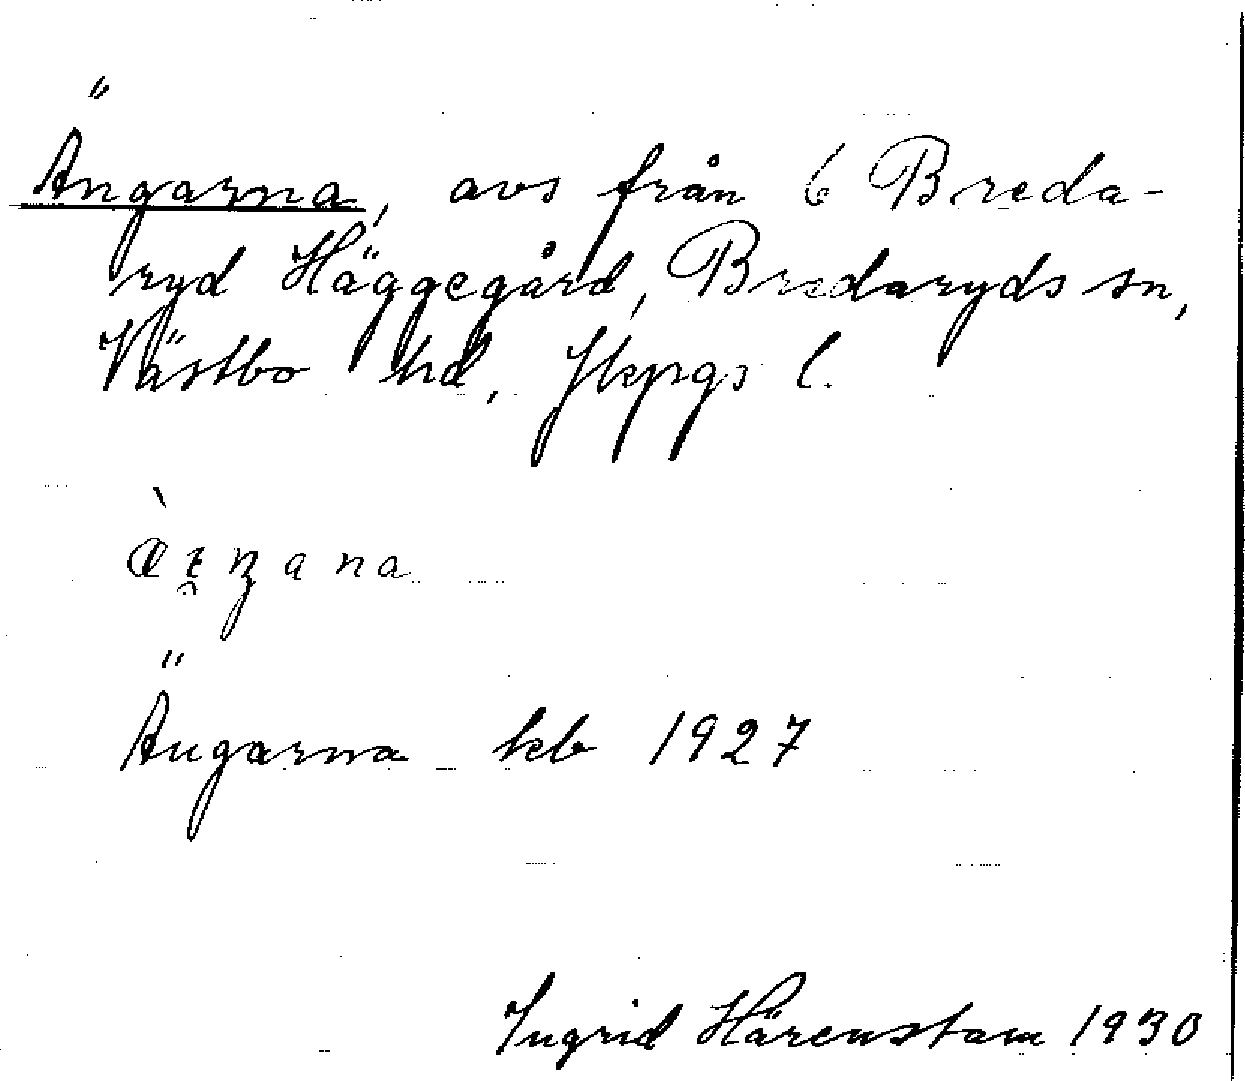 Ängarna, avs från 6 Breda-
ryd Häggegård, Bredaryds sn,
Västbo hd, Jkpgs l.
Ängarna kb 1927
Ingrid Härenstam 1930